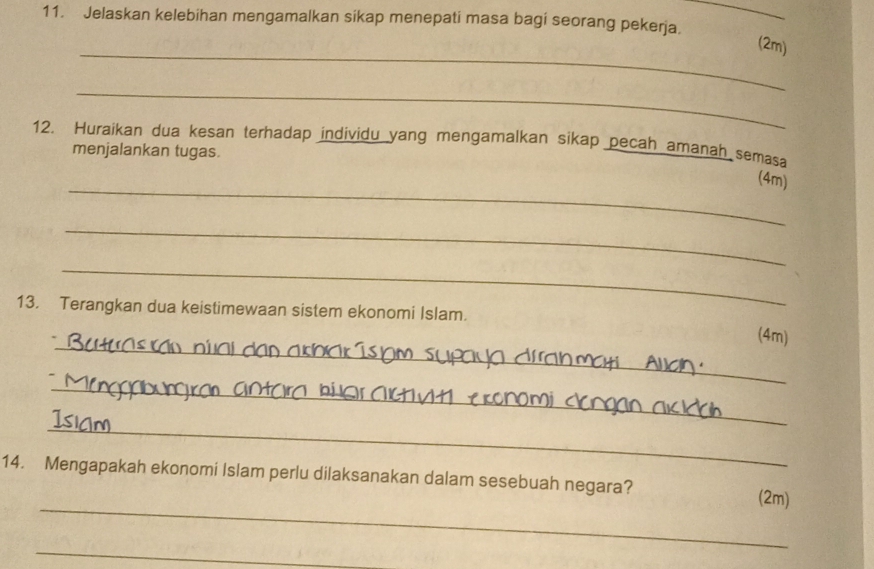 11. Jelaskan kelebihan mengamalkan sikap menepati masa bagi seorang pekerja.
(2m)
12. Huraikan dua kesan terhadap individu yang mengamalkan sikap pecah amanah semasa
menjalankan tugas.
(4m)
13. Terangkan dua keistimewaan sistem ekonomi Islam.
(4m)
- Berteraskan nilai dan akhlak islam supaya dirahmati Allah.
- Menggabungkan antara nilai aktiviti ekonomi dengan akidah
Islam
14. Mengapakah ekonomi Islam perlu dilaksanakan dalam sesebuah negara?
(2m)